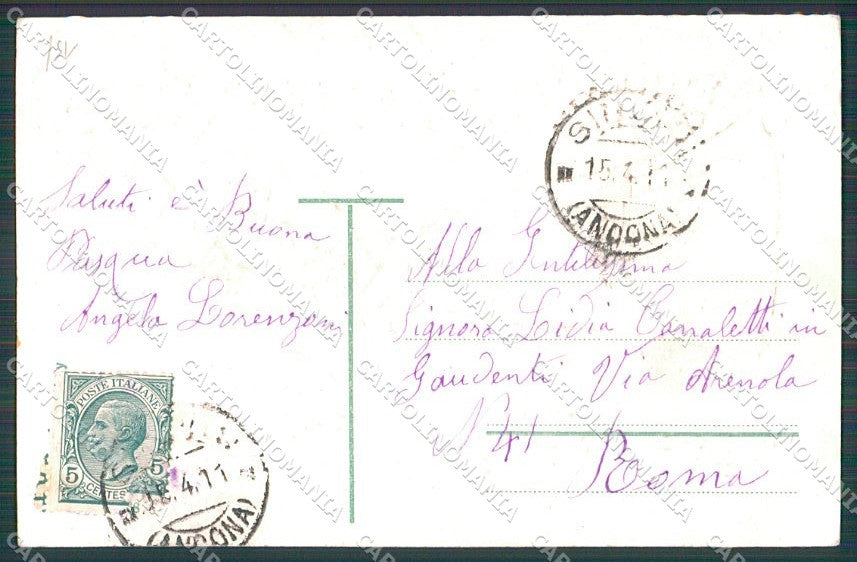 Saluti è Buona
Pasqua
Angelo Lorenzoni
POSTE ITALIANE
5 5
CENTES
15.4.11
(ANCONA)
15.4.11
(ANCONA)
Alla Gentilissima
Signora Lidia Canaletti in
Gaudenti Via Arenola
N° 41
Roma
CARTOLINOMANIA